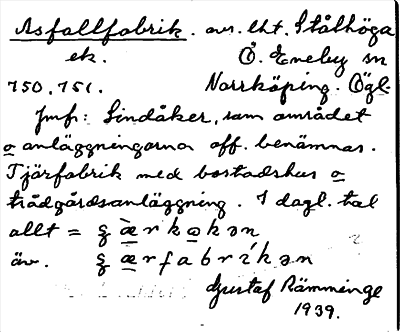 Asfallfabrik. avs. lht. Stålhöga
ek. Ö. Eneby sn
750, 751. Norrköping. Ögl.
Jmfr: Lindåker, som området
o anläggningarna off. benämnas.
Tjärfabrik med bostadshus o
trädgårdsanläggning. I dagl. tal
allt = ȿ æ̀rkokən
äv. ȿ ærfabríkən
Gustaf Rämminge
1939.